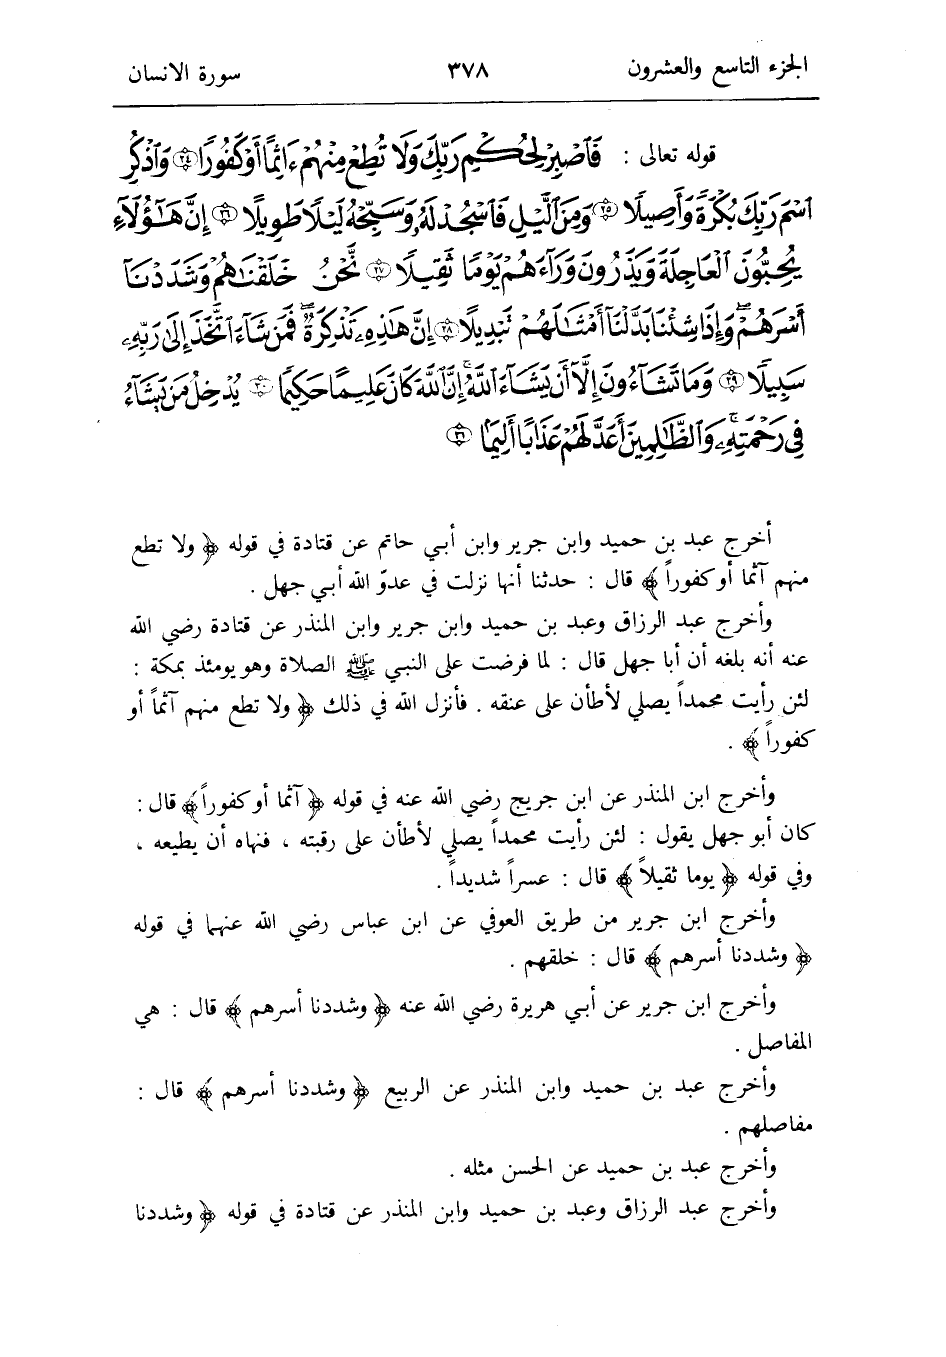 الجزء التاسع والعشرون ٣٧٨ سورة الانسان
قوله تعالى : فَٱصْبِرْ لِحُكْمِ رَبِّكَ وَلَا تُطِعْ مِنْهُمْ ءَاثِمًا أَوْ كَفُورًا ﴿٢٤﴾ وَٱذْكُرِ
ٱسْمَ رَبِّكَ بُكْرَةً وَأَصِيلًا ﴿٢٥﴾ وَمِنَ ٱلَّيْلِ فَٱسْجُدْ لَهُۥ وَسَبِّحْهُ لَيْلًا طَوِيلًا ﴿٢٦﴾ إِنَّ هَٰٓؤُلَآءِ
يُحِبُّونَ ٱلْعَاجِلَةَ وَيَذَرُونَ وَرَآءَهُمْ يَوْمًا ثَقِيلًا ﴿٢٧﴾ نَّحْنُ خَلَقْنَٰهُمْ وَشَدَدْنَآ
أَسْرَهُمْ ۖ وَإِذَا شِئْنَا بَدَّلْنَآ أَمْثَٰلَهُمْ تَبْدِيلًا ﴿٢٨﴾ إِنَّ هَٰذِهِۦ تَذْكِرَةٌ ۖ فَمَن شَآءَ ٱتَّخَذَ إِلَىٰ رَبِّهِۦ
سَبِيلًا ﴿٢٩﴾ وَمَا تَشَآءُونَ إِلَّآ أَن يَشَآءَ ٱللَّهُ ۚ إِنَّ ٱللَّهَ كَانَ عَلِيمًا حَكِيمًا ﴿٣٠﴾ يُدْخِلُ مَن يَشَآءُ
فِى رَحْمَتِهِۦ ۚ وَٱلظَّٰلِمِينَ أَعَدَّ لَهُمْ عَذَابًا أَلِيمًا ﴿٣١﴾
أخرج عبد بن حميد وابن جرير وابن أبي حاتم عن قتادة في قوله ﴿ ولا تطع
منهم آثما أو كفوراً ﴾ قال : حدثنا أنها نزلت في عدوّ الله أبي جهل .
وأخرج عبد الرزاق وعبد بن حميد وابن جرير وابن المنذر عن قتادة رضي الله
عنه أنه بلغه أن أبا جهل قال : لما فرضت على النبي ﷺ الصلاة وهو يومئذ بمكة :
لئن رأيت محمداً يصلي لأطأن على عنقه . فأنزل الله في ذلك ﴿ ولا تطع منهم آثماً أو
كفوراً ﴾ .
وأخرج ابن المنذر عن ابن جريج رضي الله عنه في قوله ﴿ آثما أو كفوراً﴾ قال :
كان أبو جهل يقول : لئن رأيت محمداً يصلي لأطأن على رقبته ، فنهاه أن يطيعه ،
وفي قوله ﴿ يوما ثقيلاً ﴾ قال : عسراً شديداً .
وأخرج ابن جرير من طريق العوفي عن ابن عباس رضي الله عنهما في قوله
﴿ وشددنا أسرهم ﴾ قال : خلقهم .
وأخرج ابن جرير عن أبي هريرة رضي الله عنه ﴿ وشددنا أسرهم ﴾ قال : هي
المفاصل .
وأخرج عبد بن حميد وابن المنذر عن الربيع ﴿ وشددنا أسرهم ﴾ قال :
مفاصلهم .
وأخرج عبد بن حميد عن الحسن مثله .
وأخرج عبد الرزاق وعبد بن حميد وابن المنذر عن قتادة في قوله ﴿ وشددنا